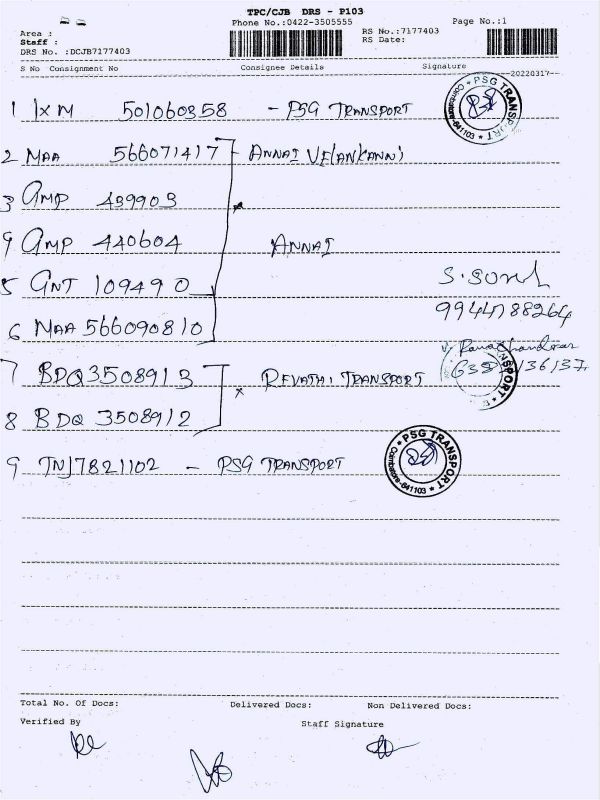 TPC/CJB DRS - P103
Phone No.:0422-3505555
Page No.:1
Area :
Staff :
DRS No. :DCJB7177403
RS No.:7177403
RS Date:
S No Consignment No Consignee Details Signature
20220317
1 IXM 501060358 - PSG TRANSPORT
PSG TRANSPORT
Coimbatore-641103
2 MAA 566071417 - ANNAI VELANKANNI
3 AMP 439903
4 AMP 440604 ANNAI
5 GNT 109490
6 MAA 566090810
9944788264
7 BDQ3508913 REVATHI TRANSPORT
8 BDQ 3508912
9 TNJ7821102 - PSG TRANSPORT
PSG TRANSPORT
Coimbatore-641103
Total No. Of Docs: Delivered Docs: Non Delivered Docs:
Verified By Staff Signature